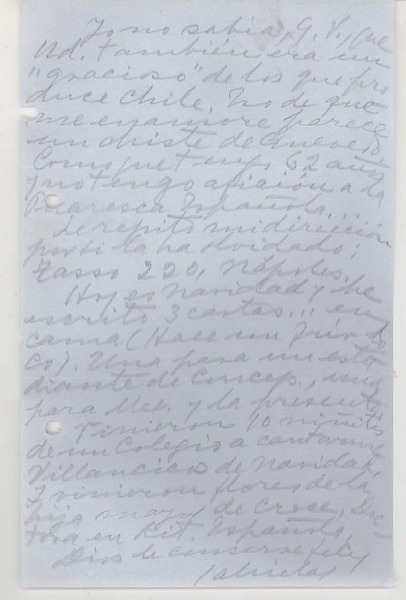 Yo no sabía, G. V., que
Ud. también era un
"gracioso" de los que pro
duce Chile. Lo de que
me enamore parece
un chiste de Quevedo.
Como que tengo 62 años
y no tengo afición a la
Picaresca Española....
Le repito mi dirección
por si la ha olvidado:
Tasso 220, Nápoles.
Hoy es Navidad y he
escrito 3 cartas... en
cama (Hace un frío lo
co). Una para un estu
diante de Concep., una
para Mex. y la presente.
Vinieron 10 niñitas
de un Colegio a cantarme
Villancicos de Navidad.
Y vinieron flores de la
hija mayor de Croce, Doc
tora en Lit. Española.
Dios le conserve feliz
Gabriela